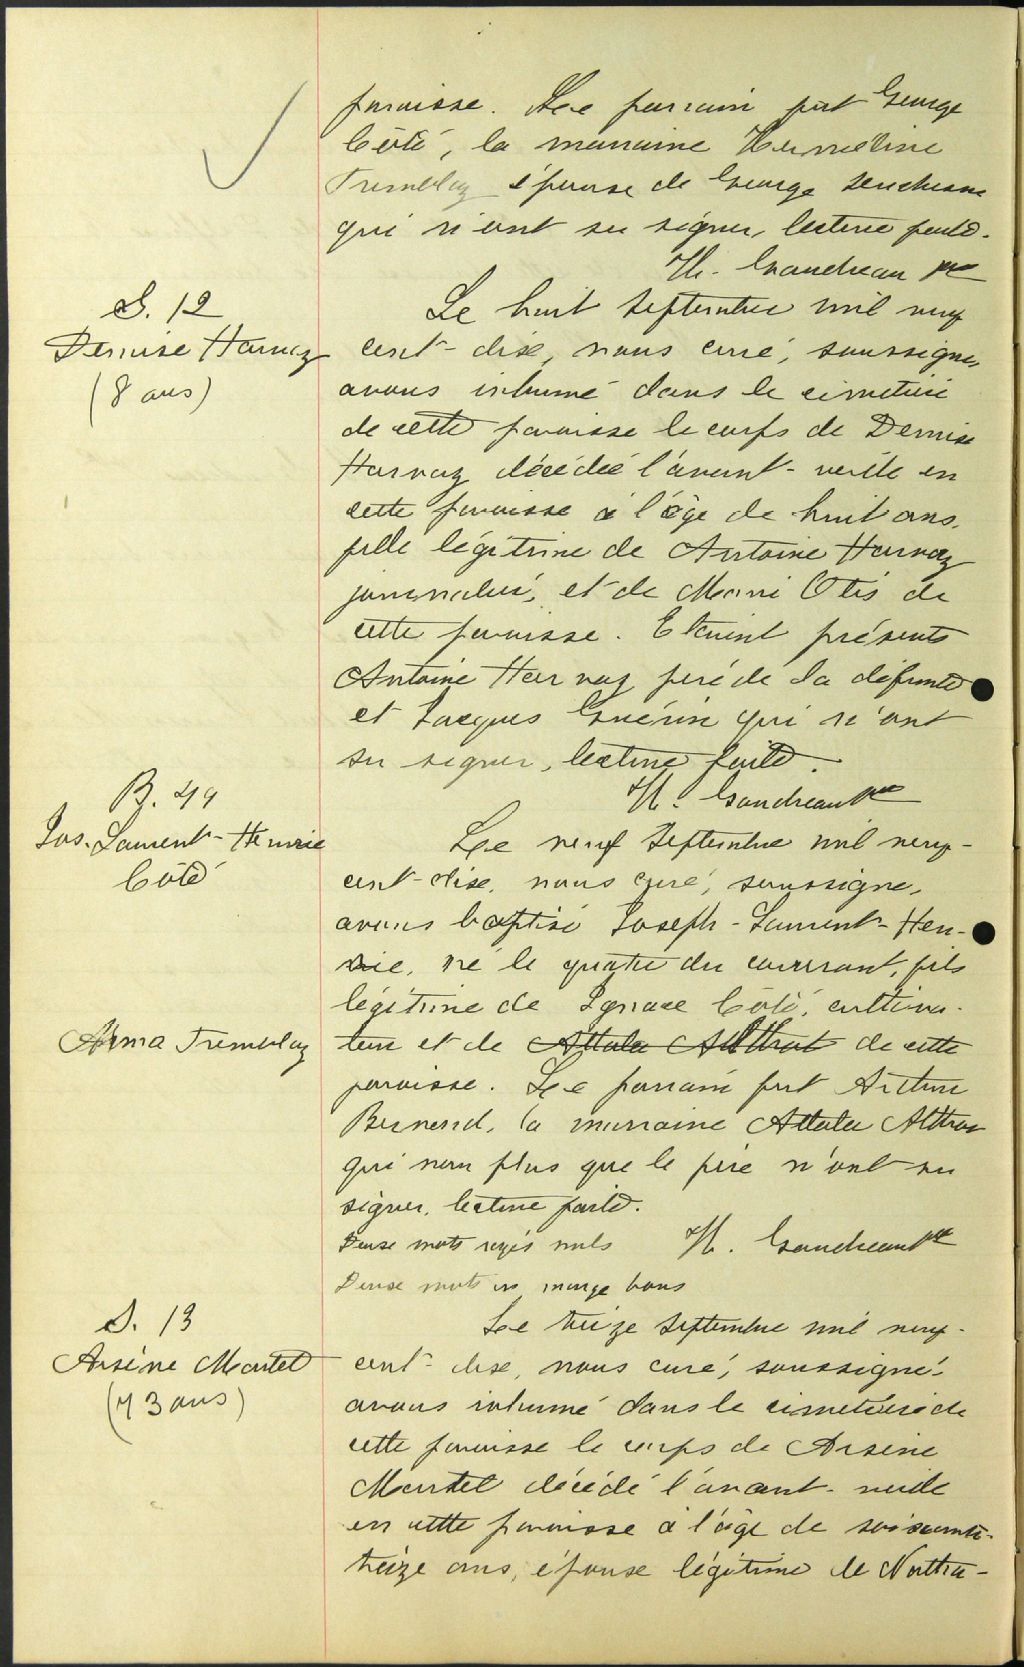 paroisse. Le parrain fut George
Côté, la marraine Hermeline
Tremblay épouse de George Duchesne
qui n'ont su signer, lecture faite.
H. Gaudreau ptre
S. 12
Denise Harvay
(8 ans)
Le huit Septembre mil neuf
cent-dix, nous curé, soussigné,
avons inhumé dans le cimetière
de cette paroisse le corps de Denise
Harvay décédée l'avant-veille en
cette paroisse à l'âge de huit ans,
fille légitime de Antoine Harvay
journalier, et de Marie Otis de
cette paroisse. Etaient présents
Antoine Harvay père de la défunte
et Jacques Guérin qui n'ont
su signer, lecture faite.
H. Gaudreau ptre
B. 49
Jos. Laurent-Henrie
Côté
Le neuf Septembre mil neuf-
cent-dix, nous curé, soussigné,
avons baptisé Joseph-Laurent-Hen-
rie, né le quatre du courrant, fils
légitime de Ignace Côté, cultiva-
Alma Tremblay
teur et de Attala Alltrat de cette
paroisse. Le parrain fut Arthur
Bernard, la marraine Attala Alltrat
qui non plus que le père n'ont su
signer, lecture faite.
Deux mots rayés nuls H. Gaudreau ptre
Deux mots en marge bons
S. 13
Arsène Martel
(73 ans)
Le treize Septembre mil neuf-
cent-dix, nous curé, soussigné,
avons inhumé dans le cimetière de
cette paroisse le corps de Arsène
Martel décédé l'avant-veille
en cette paroisse à l'âge de soixante-
treize ans, épouse légitime de Natha-